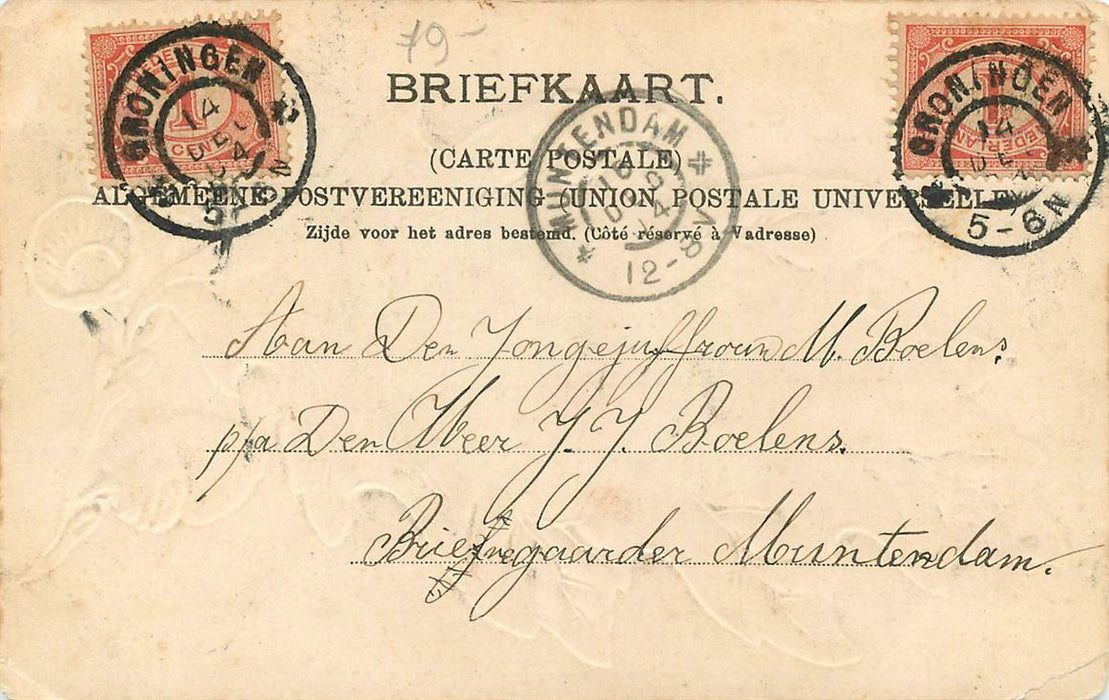 79-
BRIEFKAART.
(CARTE POSTALE)
ALGEMEENE POSTVEREENIGING (UNION POSTALE UNIVERSELLE)
Zijde voor het adres bestemd. (Côté réservé à l'adresse)
GRONINGEN
14 DEC 04
5-6 N
MUNTENDAM
12-8 V
GRONINGEN
14 DEC 04
5-6 N
NEDERLAND
1 CENT
NEDERLAND
Aan Den Jongejuffrouw M. Boelens,
p/a Den Heer J. J. Boelens.
Briefregaarder Muntendam.